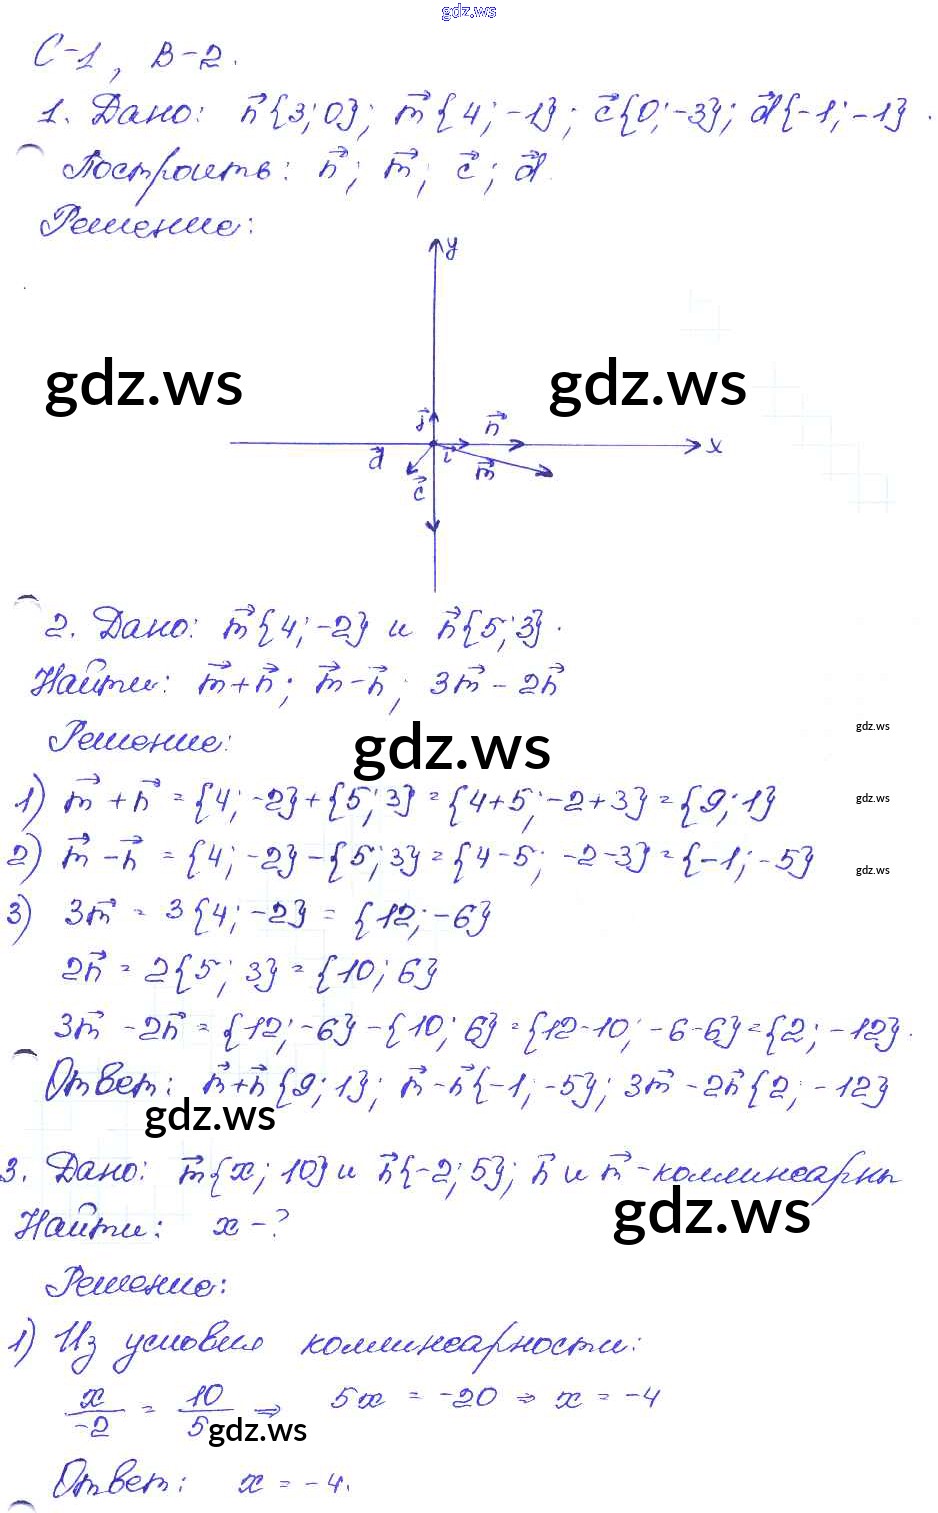 gdz.ws
С-1, В-2.
1. Дано: n⃗{3; 0}; m⃗{4; -1}; c⃗{0; -3}; d⃗{-1; -1}.
Построить: n⃗; m⃗; c⃗; d⃗.
Решение:
y
gdz.ws gdz.ws
j⃗ n⃗
d⃗ i⃗ m⃗ x
c⃗
2. Дано: m⃗{4; -2} и n⃗{5; 3}.
Найти: m⃗+n⃗; m⃗-n⃗; 3m⃗-2n⃗
gdz.ws
Решение:
gdz.ws
1) m⃗+n⃗ = {4; -2}+{5; 3} = {4+5; -2+3} = {9; 1}
gdz.ws
2) m⃗-n⃗ = {4; -2}-{5; 3} = {4-5; -2-3} = {-1; -5}
gdz.ws
3) 3m⃗ = 3{4; -2} = {12; -6}
2n⃗ = 2{5; 3} = {10; 6}
3m⃗-2n⃗ = {12; -6}-{10; 6} = {12-10; -6-6} = {2; -12}.
Ответ: m⃗+n⃗{9; 1}; m⃗-n⃗{-1; -5}; 3m⃗-2n⃗{2; -12}
gdz.ws
3. Дано: m⃗{x; 10} и n⃗{-2; 5}; n⃗ и m⃗ - коллинеарны
gdz.ws
Найти: x-?
Решение:
1) Из условия коллинеарности:
x/-2 = 10/5 ⇒ 5x = -20 ⇒ x = -4
gdz.ws
Ответ: x = -4.